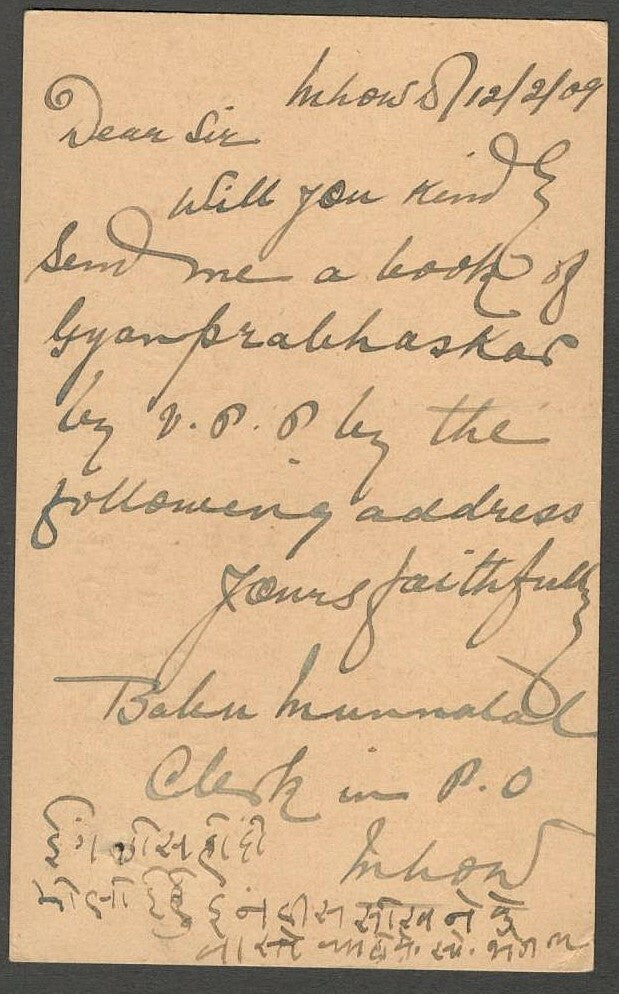 Mhow 12/2/09
Dear Sir
Will you kindly
Send me a book of
Gyanprabhaskar
by V. P. P by the
following address
Yours faithfully
Babu Munnalal
Clerk in P. O
Mhow
सीखने के
वास्ते